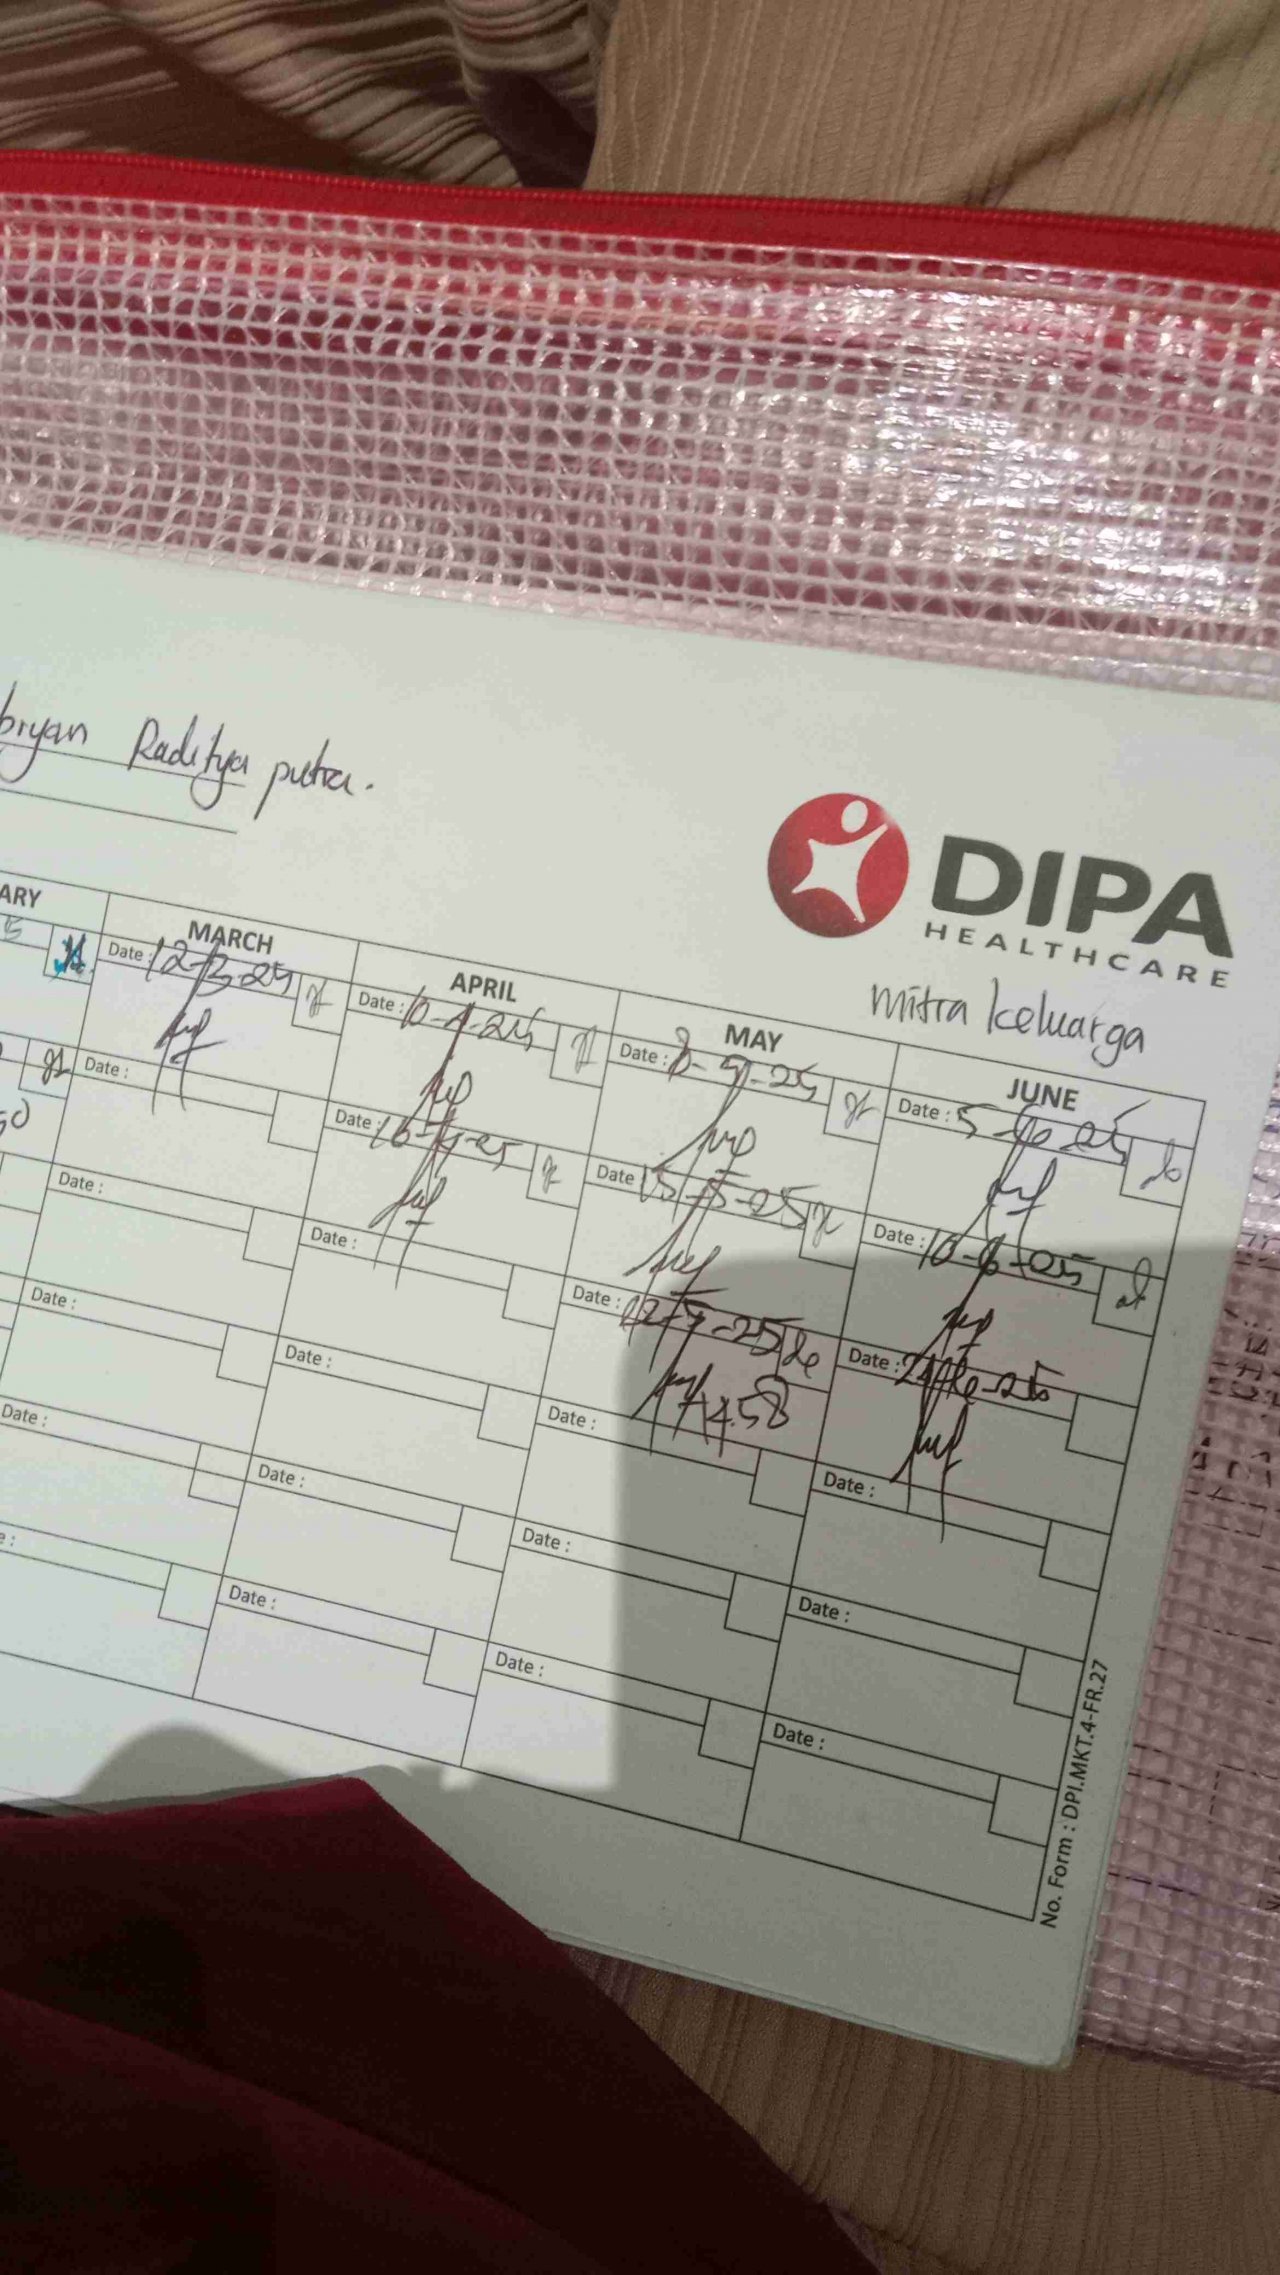 bryan Raditya putra.
DIPA
HEALTHCARE
mitra keluarga
ARY
MARCH
APRIL
MAY
JUNE
Date : 12-3-25
Date : 10-4-25
Date : 8-5-25
Date : 5-6-25
Date :
Date : 16-4-25
Date : 15-5-25
Date : 10-6-25
Date :
Date :
Date : 22-5-25
14.58
Date :
Date :
Date :
Date :
Date :
Date :
Date :
Date :
Date :
Date :
Date :
Date :
Date :
No. Form : DPI.MKT.4-FR.27